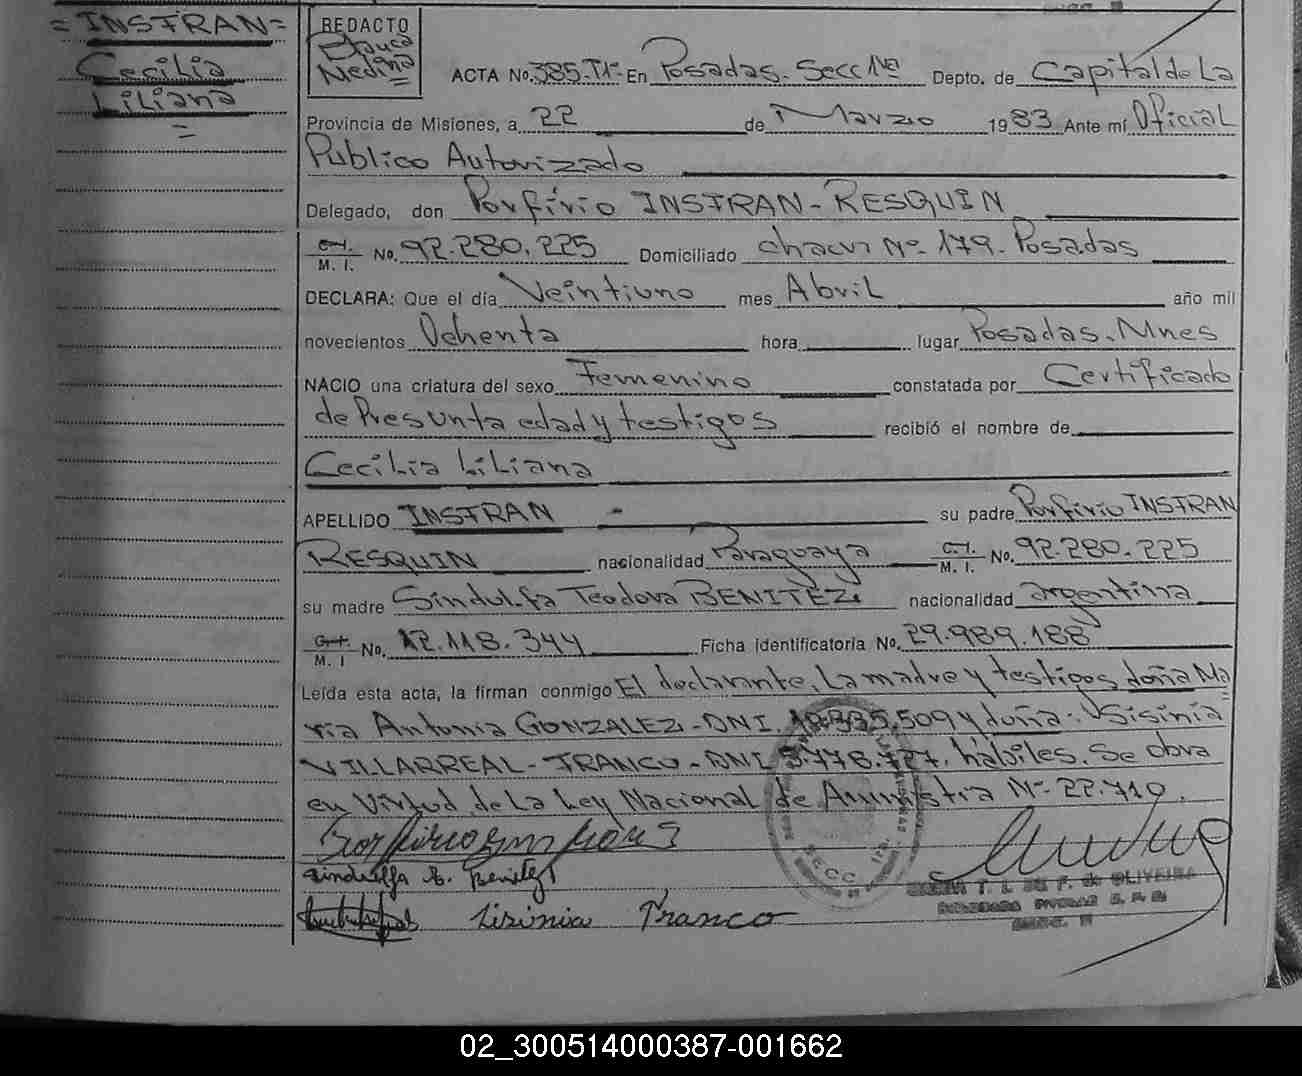 = INSFRAN =
Cecilia
Liliana
=
REDACTO
Medina
=
ACTA No. 385. T1º En Posadas. Secc 1ra Depto. de Capital de La
Provincia de Misiones, a 22 de Marzo 1983 Ante mí Oficial
Publico Autorizado
Delegado, don Porfirio INSFRAN - RESQUIN
C.I. M. I. No. 92.280.225 Domiciliado chacra Nº 179. Posadas
DECLARA: Que el día Veintiuno mes Abril año mil
novecientos Ochenta hora lugar Posadas. Mnes
NACIO una criatura del sexo Femenino constatada por Certificado
de Presunta edad y testigos recibió el nombre de
Cecilia Liliana
APELLIDO INSFRAN su padre Porfirio INSFRAN
RESQUIN nacionalidad Paraguaya C.I. M. I. No. 92.280.225
su madre Sindulfa Teodora BENITEZ. nacionalidad argentina
C.I. M. I No. 12.118.344 Ficha identificatoria No. 29.989.188
Leída esta acta, la firman conmigo El declarante, La madre y testigos doña Ma
ría Antonia GONZALEZ - DNI .509 y doña: Sisinia
VILLARREAL - FRANCO - DNI hábiles. Se obra
en Virtud de La Ley Nacional de Amnistia Nº 22.710.
Sindulfa t. Benitez
Sisinia Franco
DE OLIVEIRA
02_300514000387-001662